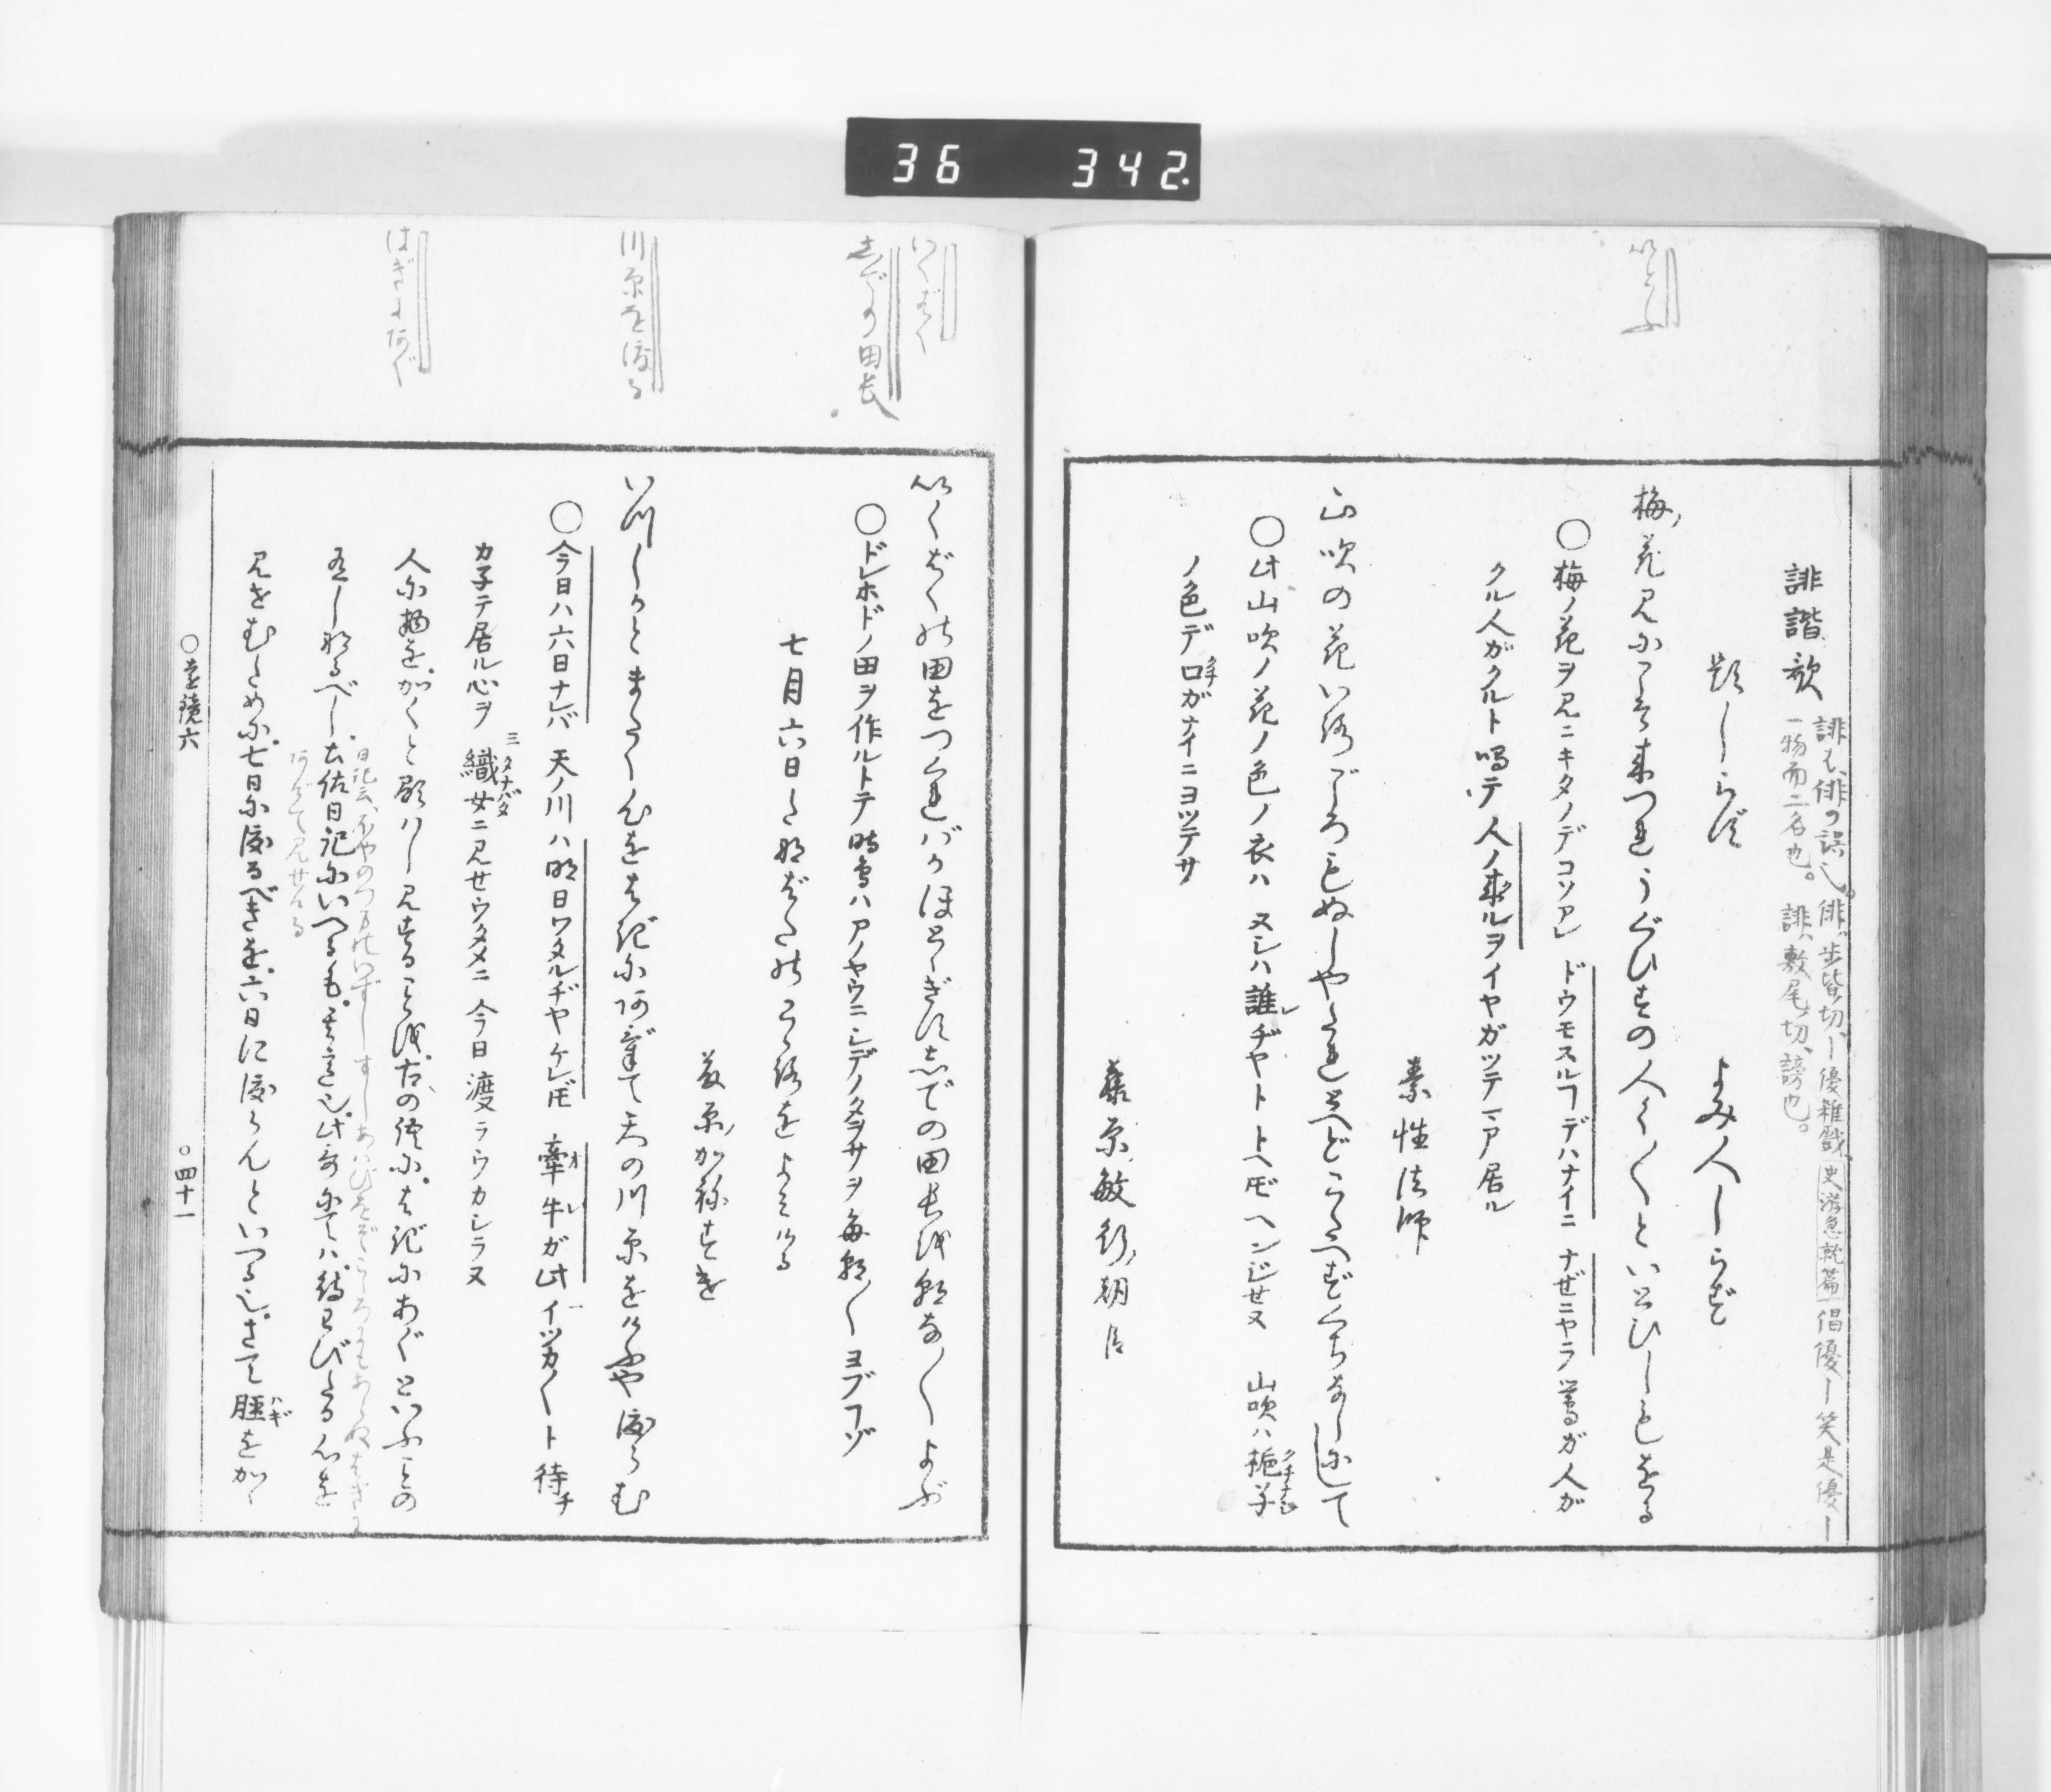 36 342.
いとふ
誹諧歌
誹も、俳の誤也。俳、歩皆ノ切、－優雑戯、史滑急就篇倡優－笑是優－
一物而二名也。誹、敷尾ノ切、謗也。
題しらず
よみ人しらず
梅ノ花見にこそ来つれうぐひすの人く〳〵といとひしもをる
○梅ノ花ヲ見ニキタノデコソアレ ドウモスルヿデハナイニ ナゼニヤラ 鶯ガ人ガ
クル人ガクルト鳴テ 人ノ来ルヲイヤガツテマア居ル
素性法師
山吹の花いろごろもぬしやたれとへどこたへずくちなしにして
○此山吹ノ花ノ色ノ衣ハ 又シハ誰レヂヤト トヘドモヘンジセヌ 山吹ハ梔子クチナシ
ノ色デ口クチガナイニヨツテサ
藤原敏行ノ朝臣
いくばく
しでの田長
川原を渡る
はぎにあぐ
いくばくの田をつくればかほとゝぎすしでの田長を朝な〳〵よぶ
○ドレホドノ田ヲ作ルトテ時鳥ハアノヤウニシデノタヲサヲ毎朝〳〵ヨブヿゾ
七月六日たなばたのこゝろをよみける
藤原ノかねすけ
いつしかとまたく心をはぎにあげて天の川原をけふや渡らむ
○今日ハ六日ナレバ 天ノ川ハ明日ワタルヂヤケレドモ 牽牛オレガ此 イツカ〳〵ト待チ
カネテ居ル心ヲ 織女タナバタニ見セウタメニ 今日渡ラウカシラヌ
人に物をかくと顕はし見することを、古の詞に、はぎにあぐといふことの
有しなるべし。土佐日記にいへるも、其意也。此哥にては、待わびたる心を
見せむために、七日に渡るべきを、六日に渡らんといへる也。さて脛ハギをかゝ
○遠鏡六
○四十一